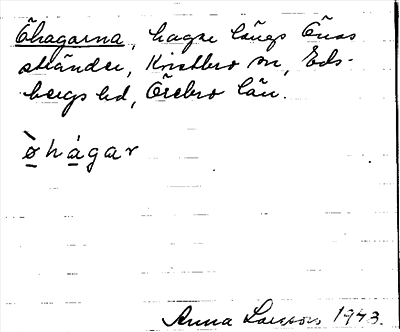 Öhagarna, hagar längs Öns
stränder, Knistbro sn, Eds-
bergs hd, Örebro län.
ø̱̀ h á̱ g a r
Anna Larsson 1943.